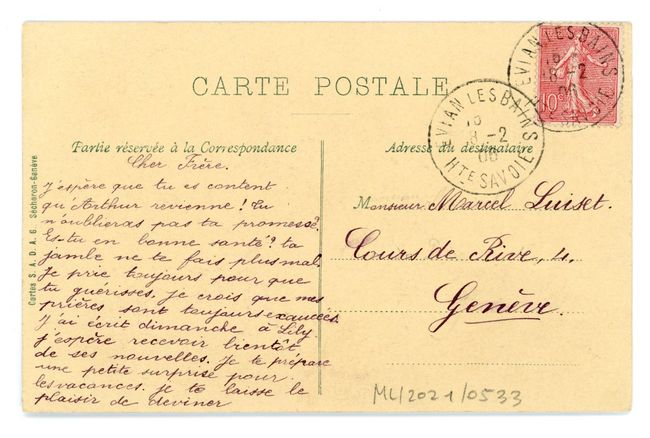 CARTE POSTALE
Partie réservée à la Correspondance
Adresse du destinataire
Cartes S. A. D. A. G. Sécheron-Genève
Cher Frère.
J'espère que tu es content
qu'Arthur revienne! Tu
n'oublieras pas ta promesse?
Es-tu en bonne santé? ta
jambe ne te fais plus mal.
Je prie toujours pour que
tu guérisses. je crois que mes
prières sont toujours exaucées.
J'ai écrit dimanche à Lily
j'espère recevoir bientôt
de ses nouvelles. Je te prépare
une petite surprise pour
les vacances. je te laisse le
plaisir de deviner
Monsieur Marcel Luiset.
Cours de Rive, 4,
Genève.
EVIAN LES BAINS
8 -2
06
HTE SAVOIE
EVIAN LES BAINS
8 -2
06
10c
ML/2021/0533